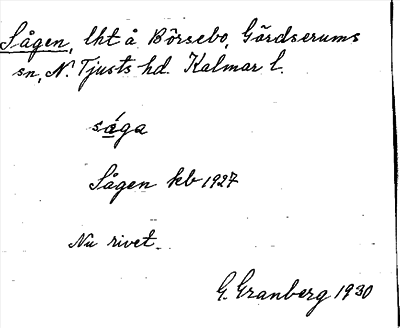 Sågen, lht å Börsebo, Gärdserums
sn, N. Tjusts hd. Kalmar l.
såga
Sågen kb 1927
Nu rivet.
G. Granberg 1930